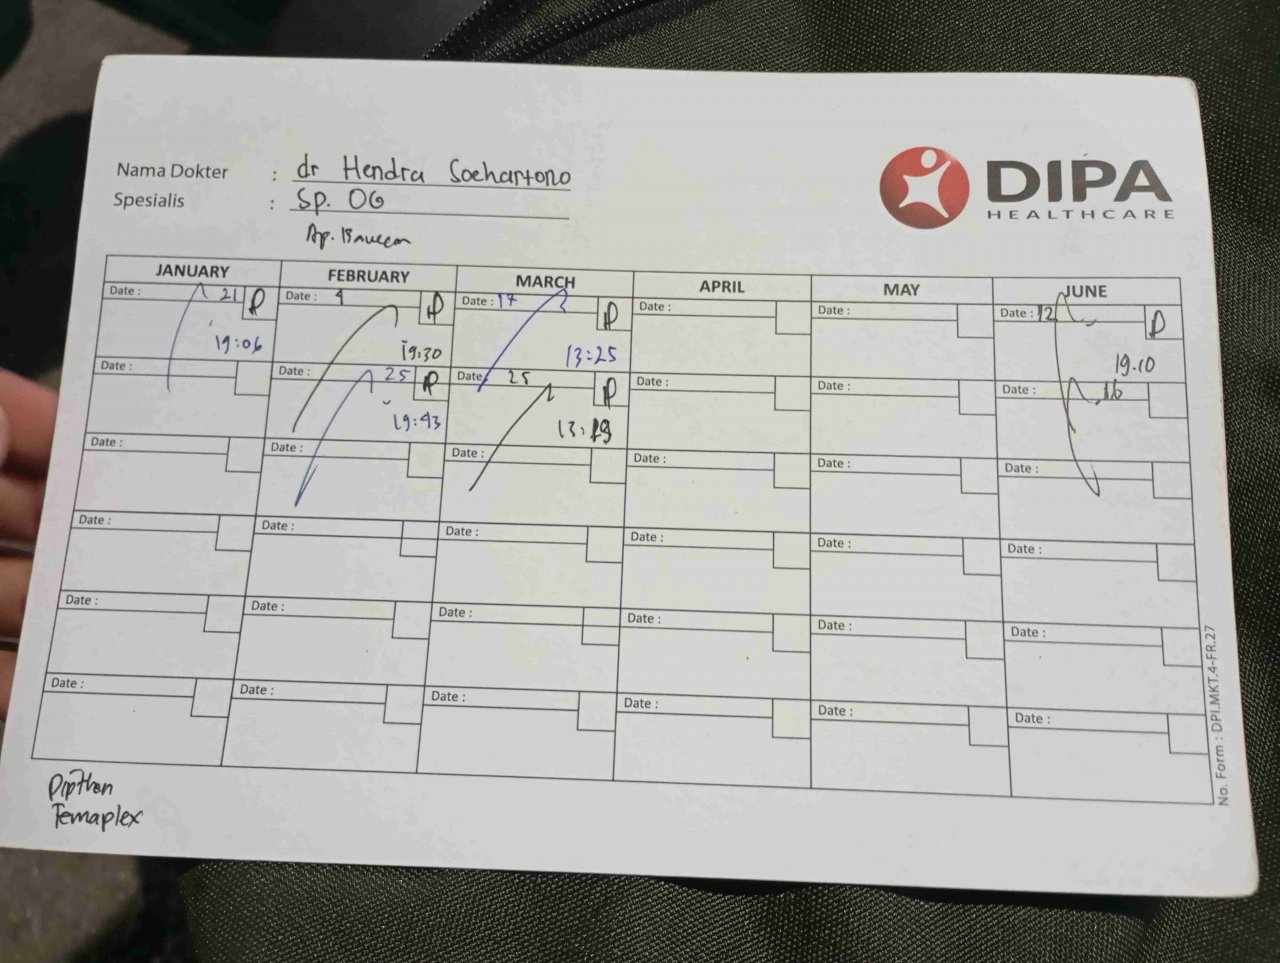 DIPA
HEALTHCARE
Nama Dokter : dr Hendra Soehartono
Spesialis : Sp. OG
Ap.
JANUARY FEBRUARY MARCH APRIL MAY JUNE
Date : 21 P Date : 4 P Date : 17 P Date : Date : Date : 12 P
19:06 19:30 13:25 19.10
Date : Date : 25 P Date : 25 P Date : Date : Date : 16
19:43 13:
Date : Date : Date : Date : Date : Date :
Date : Date : Date : Date : Date : Date :
Date : Date : Date : Date : Date : Date :
Date : Date : Date : Date : Date : Date :
No. Form : DPI.MKT.4-FR.27
Dipthen
Temaplex